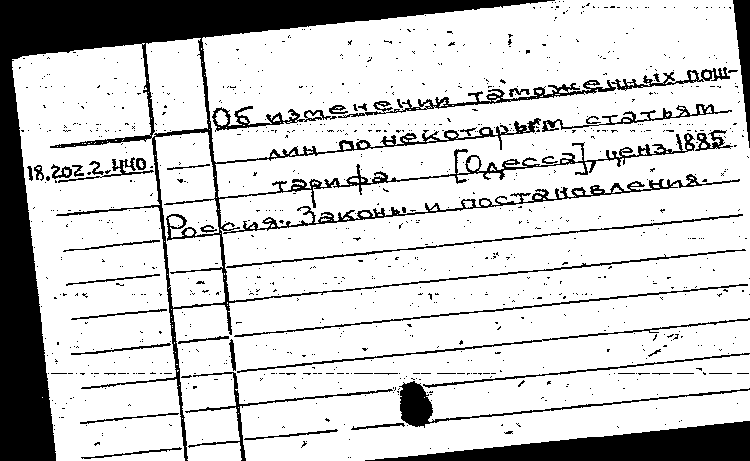 Об изменении таможенных пош-
лин по некоторым статьям
18.202.2.440
тарифа. [Одесса], ценз. 1885
Россия. Законы и постановления.